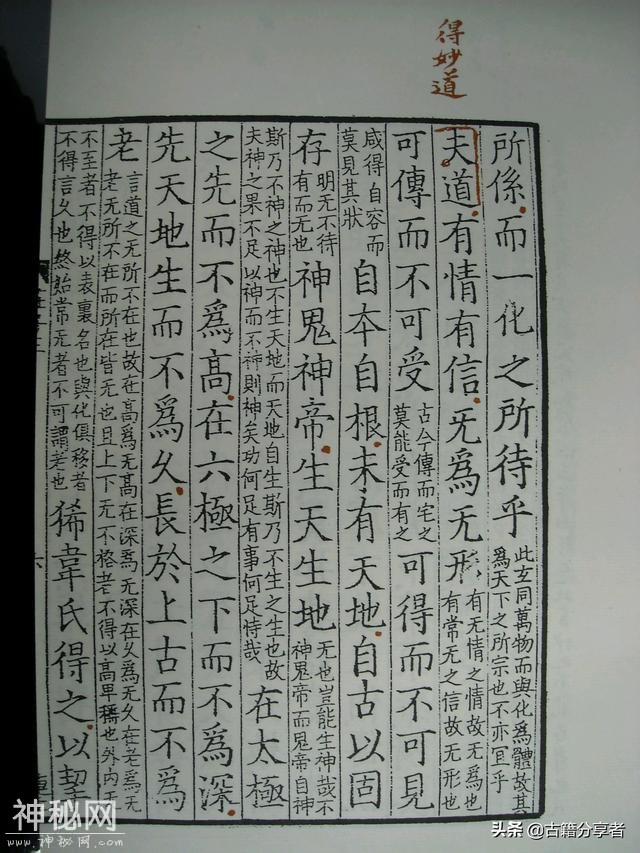 得妙道
所係而一化之所待乎此玄同萬物而與化爲體故其爲天下之所宗也不亦冝乎
夫道有情有信无爲无形有无情之情故无爲也有常无之信故无形也
可傳而不可受古今傳而宅之莫能受而有之可得而不可見
咸得自容而莫見其狀自本自根未有天地自古以固
存明无不待有而无也神鬼神帝生天生地无也豈能生神哉不神鬼帝而鬼帝自神
斯乃不神之神也不生天地而天地自生斯乃不生之生也故夫神之果不足以神而不神則神矣功何足有事何足恃哉在太極
之先而不爲高在六極之下而不爲深
先天地生而不爲久長於上古而不爲
老言道之无所不在也故在高爲无高在深爲无深在久爲无久在老爲无老无所不在而所在皆无也且上下无不格者不得以高卑稱也外内无
不至者不得以表裏名也與化俱移者不得言久也終始常无者不可謂老也狶韋氏得之以挈
神秘网
www.神秘网.com
头条 @古籍分享者